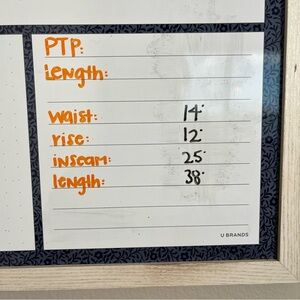 PTP:
Length:
waist: 14"
rise: 12"
inseam: 25"
length: 38"
U BRANDS